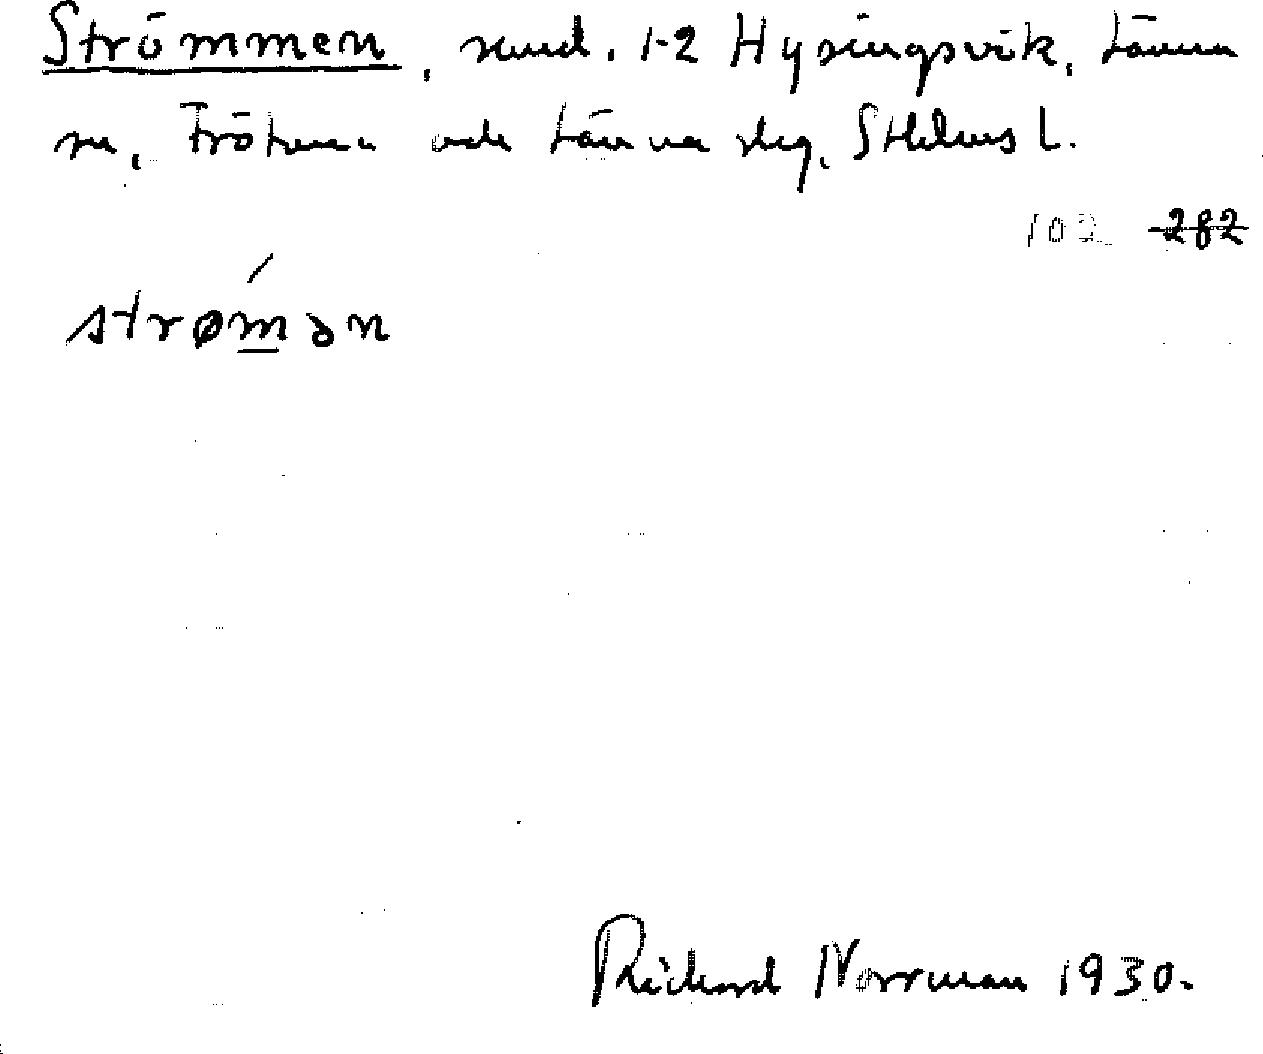 Strömmen, sund. 1-2 Hysingsvik, Länna
sn, Frötuna och Länna skg, Sthlms l.
102 282
strømən
Rickard Norrman 1930.